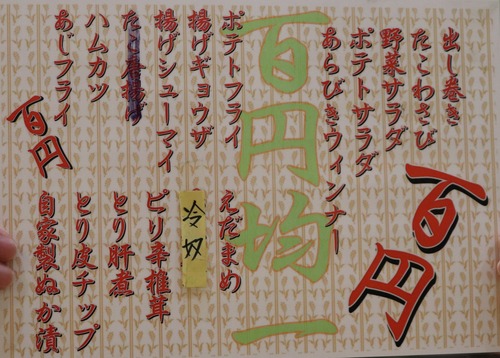 出し巻き
たこわさび
野菜サラダ
ポテトサラダ
あらびきウィンナー
百円
百円均一
ポテトフライ
揚げギョウザ
揚げシューマイ
たこ唐揚げ
ハムカツ
あじフライ
百円
えだまめ
冷奴
ピリ辛椎茸
とり肝煮
とり皮チップ
自家製ぬか漬